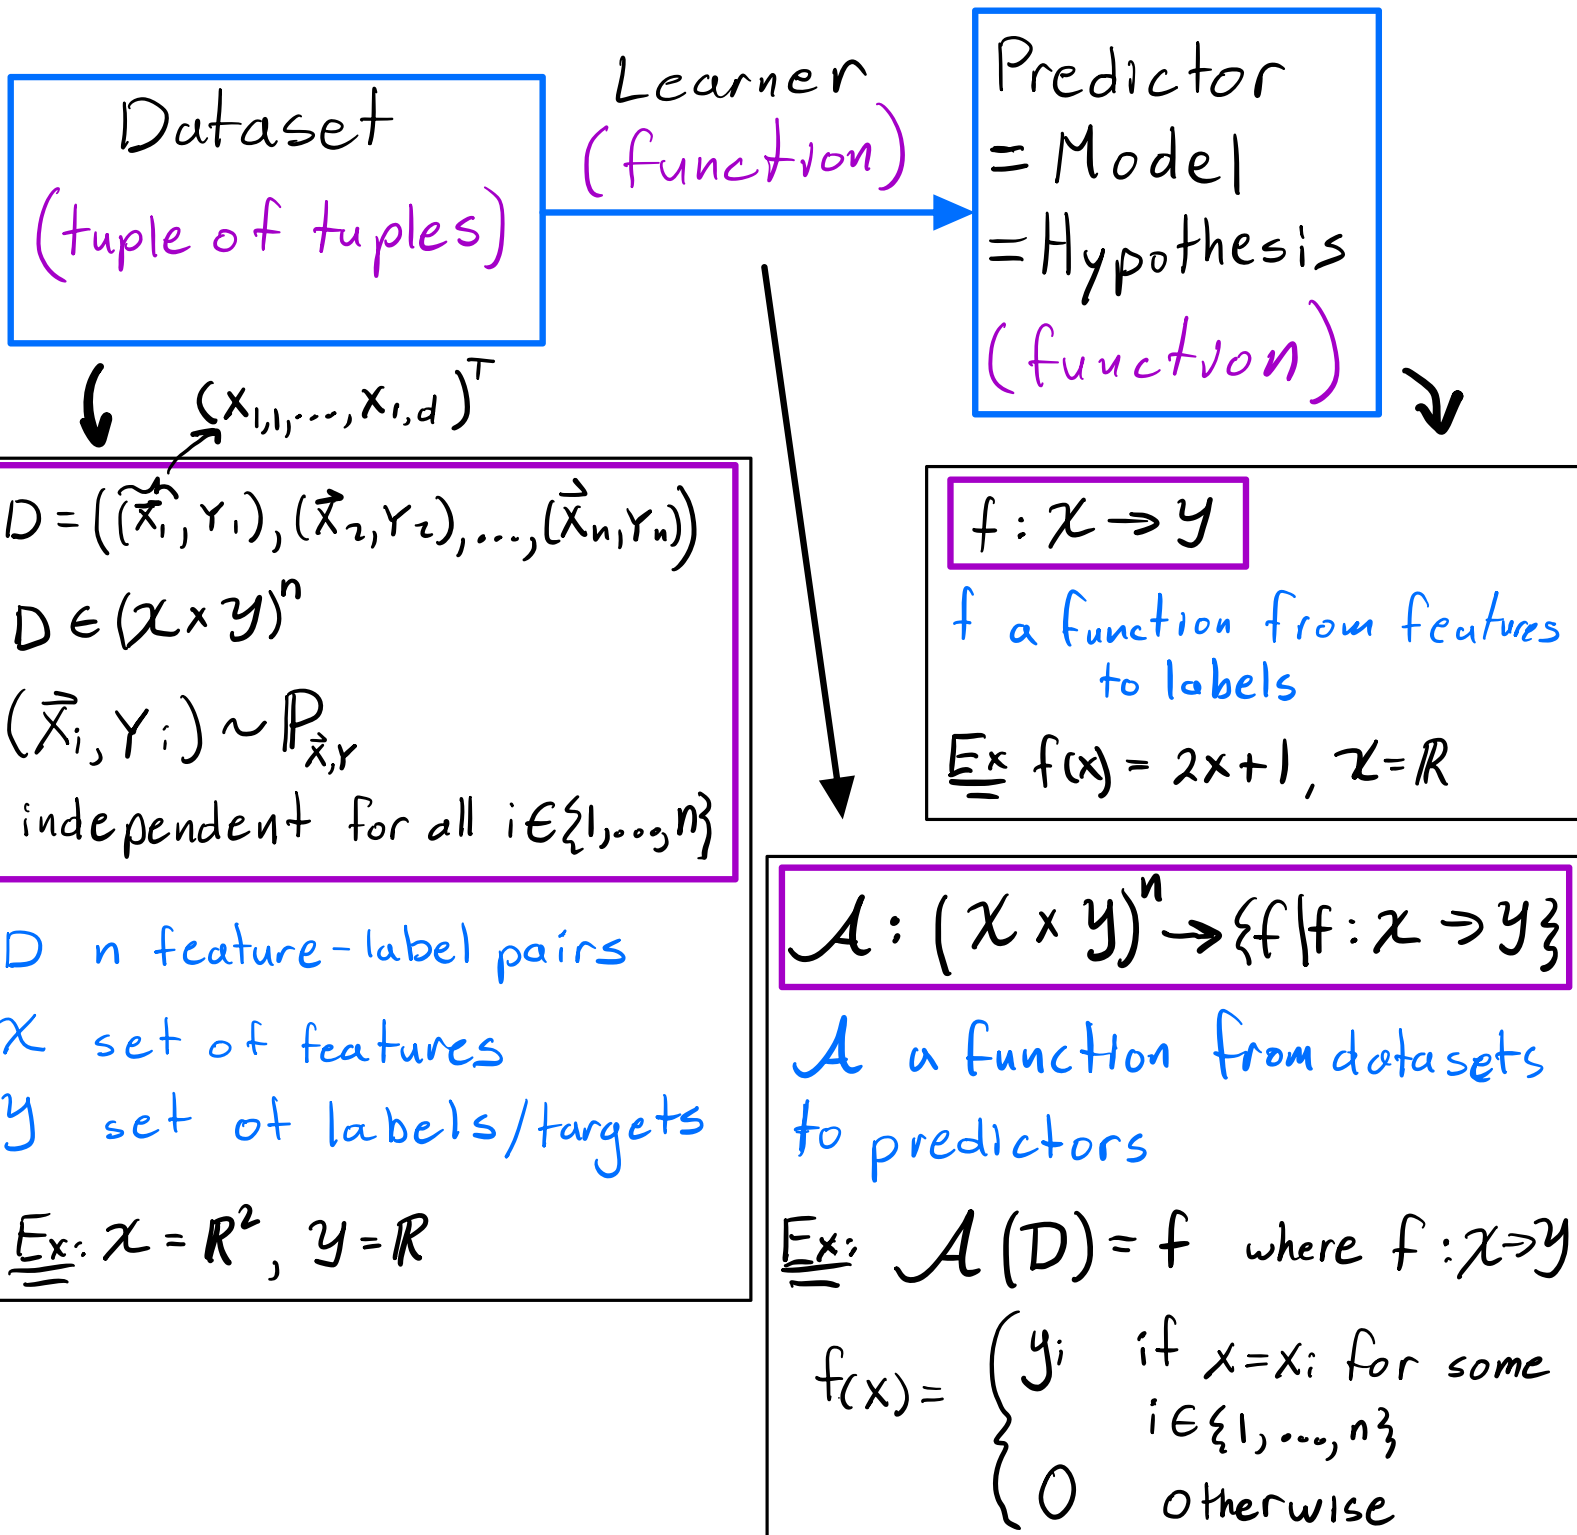 Dataset
(tuple of tuples)
Learner
(function)
Predictor
= Model
= Hypothesis
(function)
(x₁,₁,...,x₁,d)ᵀ
D = ((X⃗₁, Y₁), (X⃗₂, Y₂), ..., (X⃗ₙ, Yₙ))
D ∈ (𝒳 × 𝒴)ⁿ
(X⃗ᵢ, Yᵢ) ~ ℙ_X⃗,Y
independent for all i ∈ {1,...,n}
D n feature-label pairs
𝒳 set of features
𝒴 set of labels/targets
Ex: 𝒳 = ℝ², 𝒴 = ℝ
f : 𝒳 → 𝒴
f a function from features
to labels
Ex f(x) = 2x+1, 𝒳 = ℝ
𝒜 : (𝒳 × 𝒴)ⁿ → {f | f : 𝒳 → 𝒴}
𝒜 a function from datasets
to predictors
Ex: 𝒜(D) = f where f : 𝒳 → 𝒴
f(x) = { yᵢ if x = xᵢ for some
i ∈ {1, ..., n}
0 otherwise